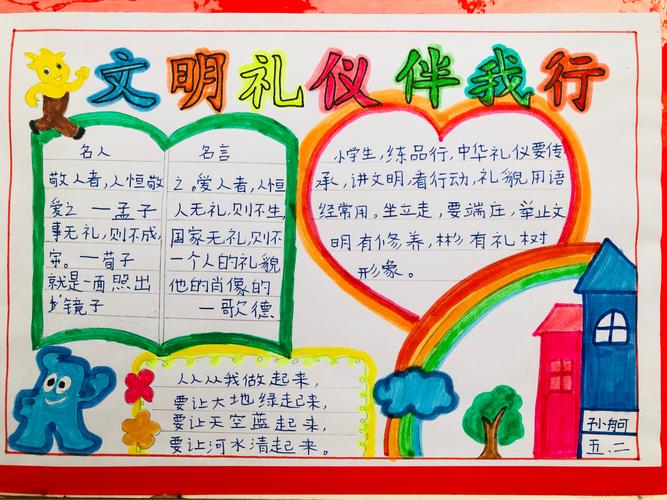 文明礼仪伴我行
名人 名言
敬人者,人恒敬之。爱人者,人恒
爱之 —孟子 人无礼,则不生,
事无礼,则不成,国家无礼,则不
宁。—荀子 一个人的礼貌
就是一面照出他的肖像的
镜子 —歌德
小学生,练品行,中华礼仪要传
承,讲文明,看行动,礼貌用语
经常用。坐立走,要端庄,举止文
明有修养,彬有礼树
形象。
人人从我做起来,
要让大地绿起来,
要让天空蓝起来,
要让河水清起来。
孙舸
五.二